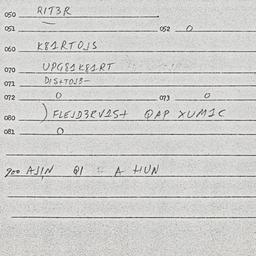 050 RIT3R
051 — 052 0
060 K81RTOJS
070 UPG81K81RT
071 DISTOJS-
072 0 073 0
080 ) FLEJD3RV1S+ QAP XUM1C
081 0
900 AJIN QI A HUN